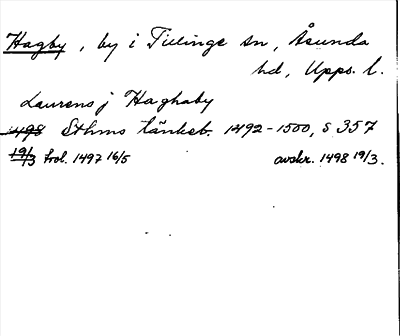 Hagby, by i Tillinge sn, Åsunda
hd, Upps. l.
Laurens j Haghaby
1498 Sthms tänkeb. 1492-1500, s 357
19/3 trol. 1497 16/5 avskr. 1498 19/3.